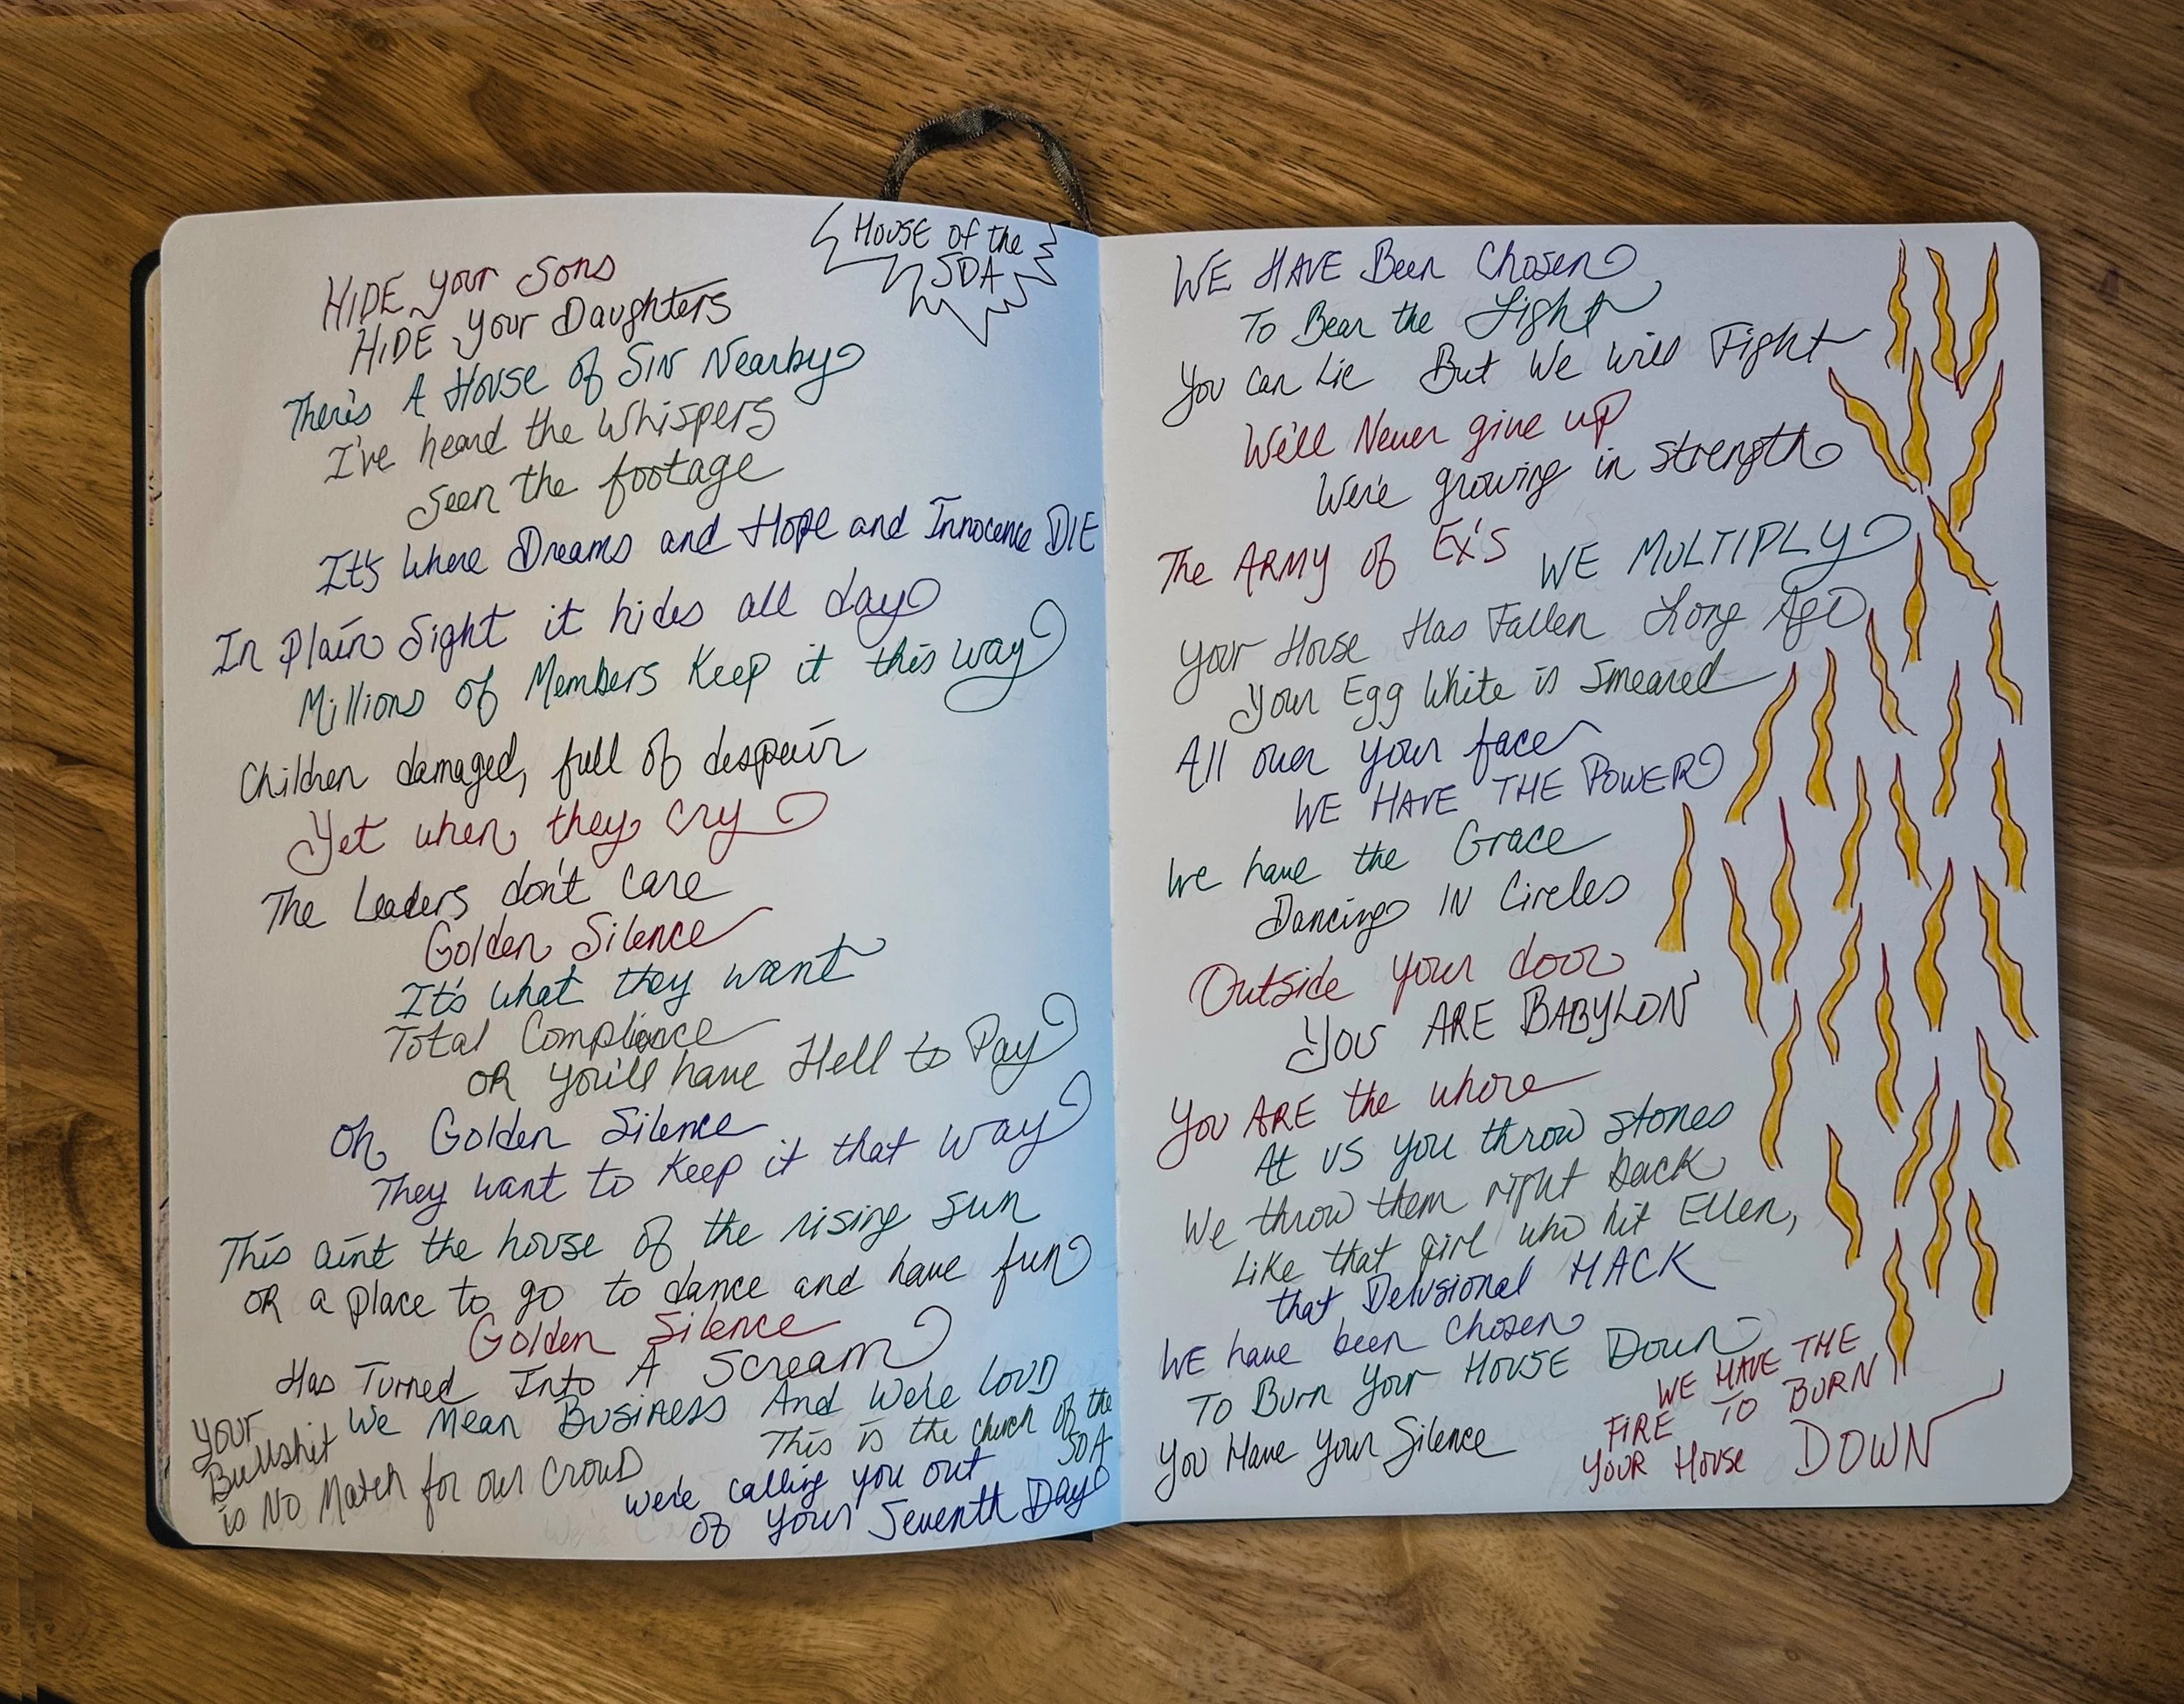 House of the
SDA
HIDE your Sons
HIDE your Daughters
There's A House of Sin Nearby
I've heard the Whispers
Seen the footage
It's Where Dreams and Hope and Innocence DIE
In Plain Sight it hides all day
Millions of Members Keep it this way
Children damaged, full of despair
Yet when they cry
The Leaders don't care
Golden Silence
It's what they want
Total Compliance
OR you'll have Hell to Pay
Oh, Golden Silence
They want to keep it that way
This aint the house of the rising sun
OR a place to go to dance and have fun
Golden Silence
Has Turned Into A Scream
We Mean Business And We're LOUD
Your
Bullshit
is No Match for our Crowd
This is the church of the
SDA
We're calling you out
of your Seventh Day
WE HAVE Been Chosen
To Bear the Light
You can Lie But We will Fight
We'll Never give up
We're growing in strength
The ARMY of Ex's WE MULTIPLY
Your House Has Fallen Long Ago
Your Egg White is Smeared
All over your face
WE HAVE THE POWER
We have the Grace
Dancing IN Circles
Outside your door
YOU ARE BABYLON
You ARE the whore
At US you throw stones
We throw them right back
Like that girl who hit Ellen,
that Delusional HACK
WE have been chosen
To Burn Your HOUSE Down
You Have Your Silence
WE HAVE THE
FIRE TO BURN
YOUR House DOWN